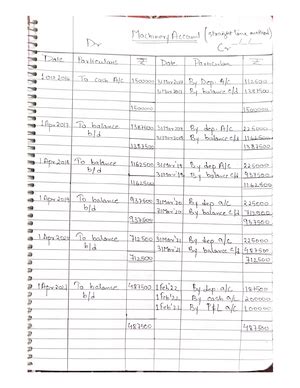 Machinery Account (straight line method)
Dr Cr
Date Particulars ₹ Date Particulars ₹
To cash A/c 1500000 By Dep. A/c 112500
By balance c/d 1387500
1500000 1500000
To balance b/d 1387500 By dep. A/c 225000
By balance c/d 1162500
1387500 1387500
To balance b/d 1162500 31Mar'19 By dep. A/c 225000
31Mar'19 By balance c/d 937500
1162500 1162500
To balance b/d 937500 By dep. a/c 225000
By balance c/d 712500
937500 937500
To balance b/d 712500 31Mar'21 By dep a/c 225000
31Mar'21 By balance c/d 487500
712500 712500
1Apr2021 To balance b/d 487500 1Feb'22 By dep a/c 187500
1Feb'22 By cash a/c 200000
1Feb'22 By P&L a/c 100000
487500 487500